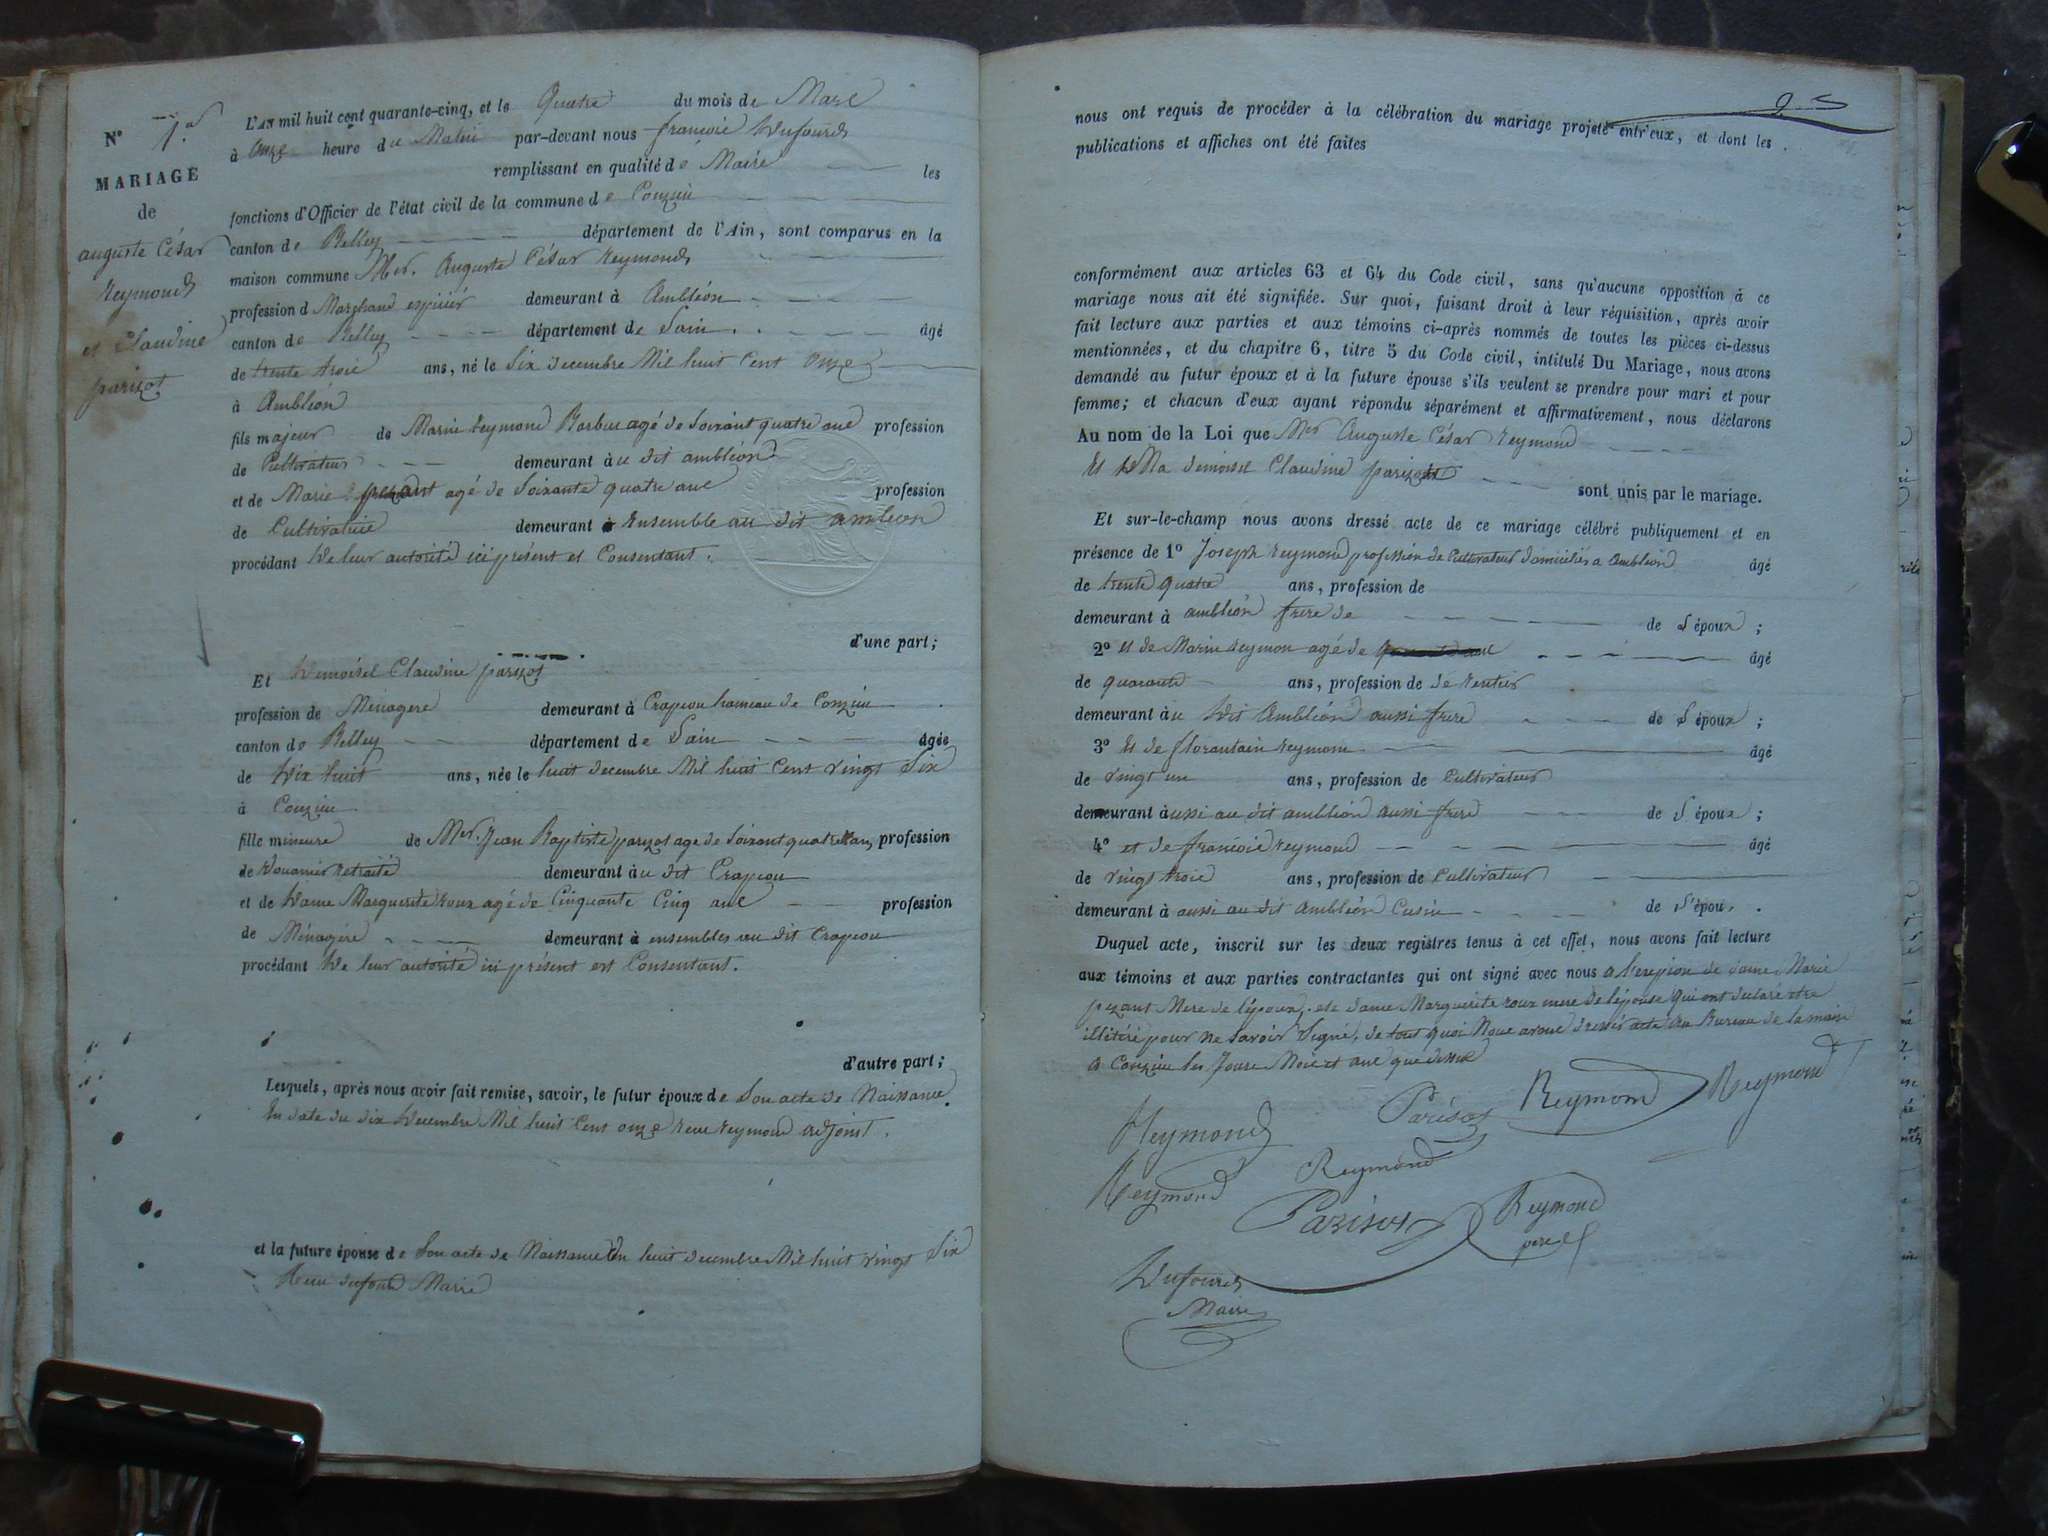 N° 1.er
MARIAGE
de
auguste César
Reymond
et Claudine
parizot
L'AN mil huit cent quarante-cinq, et le Quatre du mois de Mars
à Onze heure du Matin par-devant nous françois Dufourd
remplissant en qualité de Maire les
fonctions d'Officier de l'état civil de la commune de Conzieu
canton de Belley département de l'Ain, sont comparus en la
maison commune Mr. Auguste César Reymond
profession d Marchand expicier demeurant à Ambléon
canton de Belley département de Lain âgé
de trente trois ans, né le Six decembre Mil huit Cent Onze
à Ambléon
fils majeur de Marin Reymond Barbu agé de Soixant quatre ans profession
de Cultivateur demeurant àu dit ambléon
et de Marie pezant agé de Soixante quatre ans profession
de Cultivatrice demeurant à Ensemble au dit ambleon
procédant De leur autorité ici présent et Consentant.
d'une part;
Et Demoisel Claudine parizot
profession de Ménagere demeurant à Crapeou hameau de Conzieu
canton de Belley département de Lain âgée
de Dix huit ans, née le huit decembre Mil huit Cent vingt Six
à Conzieu
fille mineure de Mr. Jean Baptiste parizot age de Soixant quatre ans profession
de Douanier Retraité demeurant àu dit Crapeou
et de Dame Marguerite roux agé de Cinquante Cinq ans profession
de Ménagère demeurant à ensembles au dit Crapeou
procédant De leur autorité ici présent est Consentant.
d'autre part;
Lesquels, après nous avoir fait remise, savoir, le futur époux de Son acte de Naissance
En date du dix Decembre Mil huit Cent onze Reymond adjoint.
et la future épouse de Son acte de Naissance Du huit decembre Mil huit vingt Six
dufourd Maire
nous ont requis de procéder à la célébration du mariage projeté entr'eux, et dont les
publications et affiches ont été faites
conformément aux articles 63 et 64 du Code civil, sans qu'aucune opposition à ce
mariage nous ait été signifiée. Sur quoi, faisant droit à leur réquisition, après avoir
fait lecture aux parties et aux témoins ci-après nommés de toutes les pièces ci-dessus
mentionnées, et du chapitre 6, titre 5 du Code civil, intitulé Du Mariage, nous avons
demandé au futur époux et à la future épouse s'ils veulent se prendre pour mari et pour
femme; et chacun d'eux ayant répondu séparément et affirmativement, nous déclarons
Au nom de la Loi que Mr Auguste César Reymond
Et Ma demoisel Claudine parizot
sont unis par le mariage.
Et sur-le-champ nous avons dressé acte de ce mariage célébré publiquement et en
présence de 1° Joseph Reymond profession de Cultivateur domicilier a Ambleon âgé
de trente quatre ans, profession de
demeurant à ambléon frere de de L'époux;
2° et de Marin Reymon agé de âgé
de quarante ans, profession de de Rentier
demeurant àu Dit Ambléon aussi frere de L'époux;
3° Et de florantain Reymon âgé
de vingt un ans, profession de Cultivateur
demeurant àussi au dit ambléon aussi frere de L'époux;
4° et de françois Reymond âgé
de vingt trois ans, profession de Cultivateur
demeurant à aussi au dit Ambléon Cusin de L'époux.
Duquel acte, inscrit sur les deux registres tenus à cet effet, nous avons fait lecture
aux témoins et aux parties contractantes qui ont signé avec nous a l'exepion de dame Marie
pezant Mere de l'époux, et dame Marguerite roux mere de l'épouse qui ont declaré etre
illétéré pour ne savoir Signé, de tout quoi Nous avons dressés acte Au Bureau de la mairie
a Conzieu les Jours Mois et ans que dessus
Reymond Parisot Reymond Reymond
Reymond Reymond
Parisot Reymond
pere
Dufourd
Maire